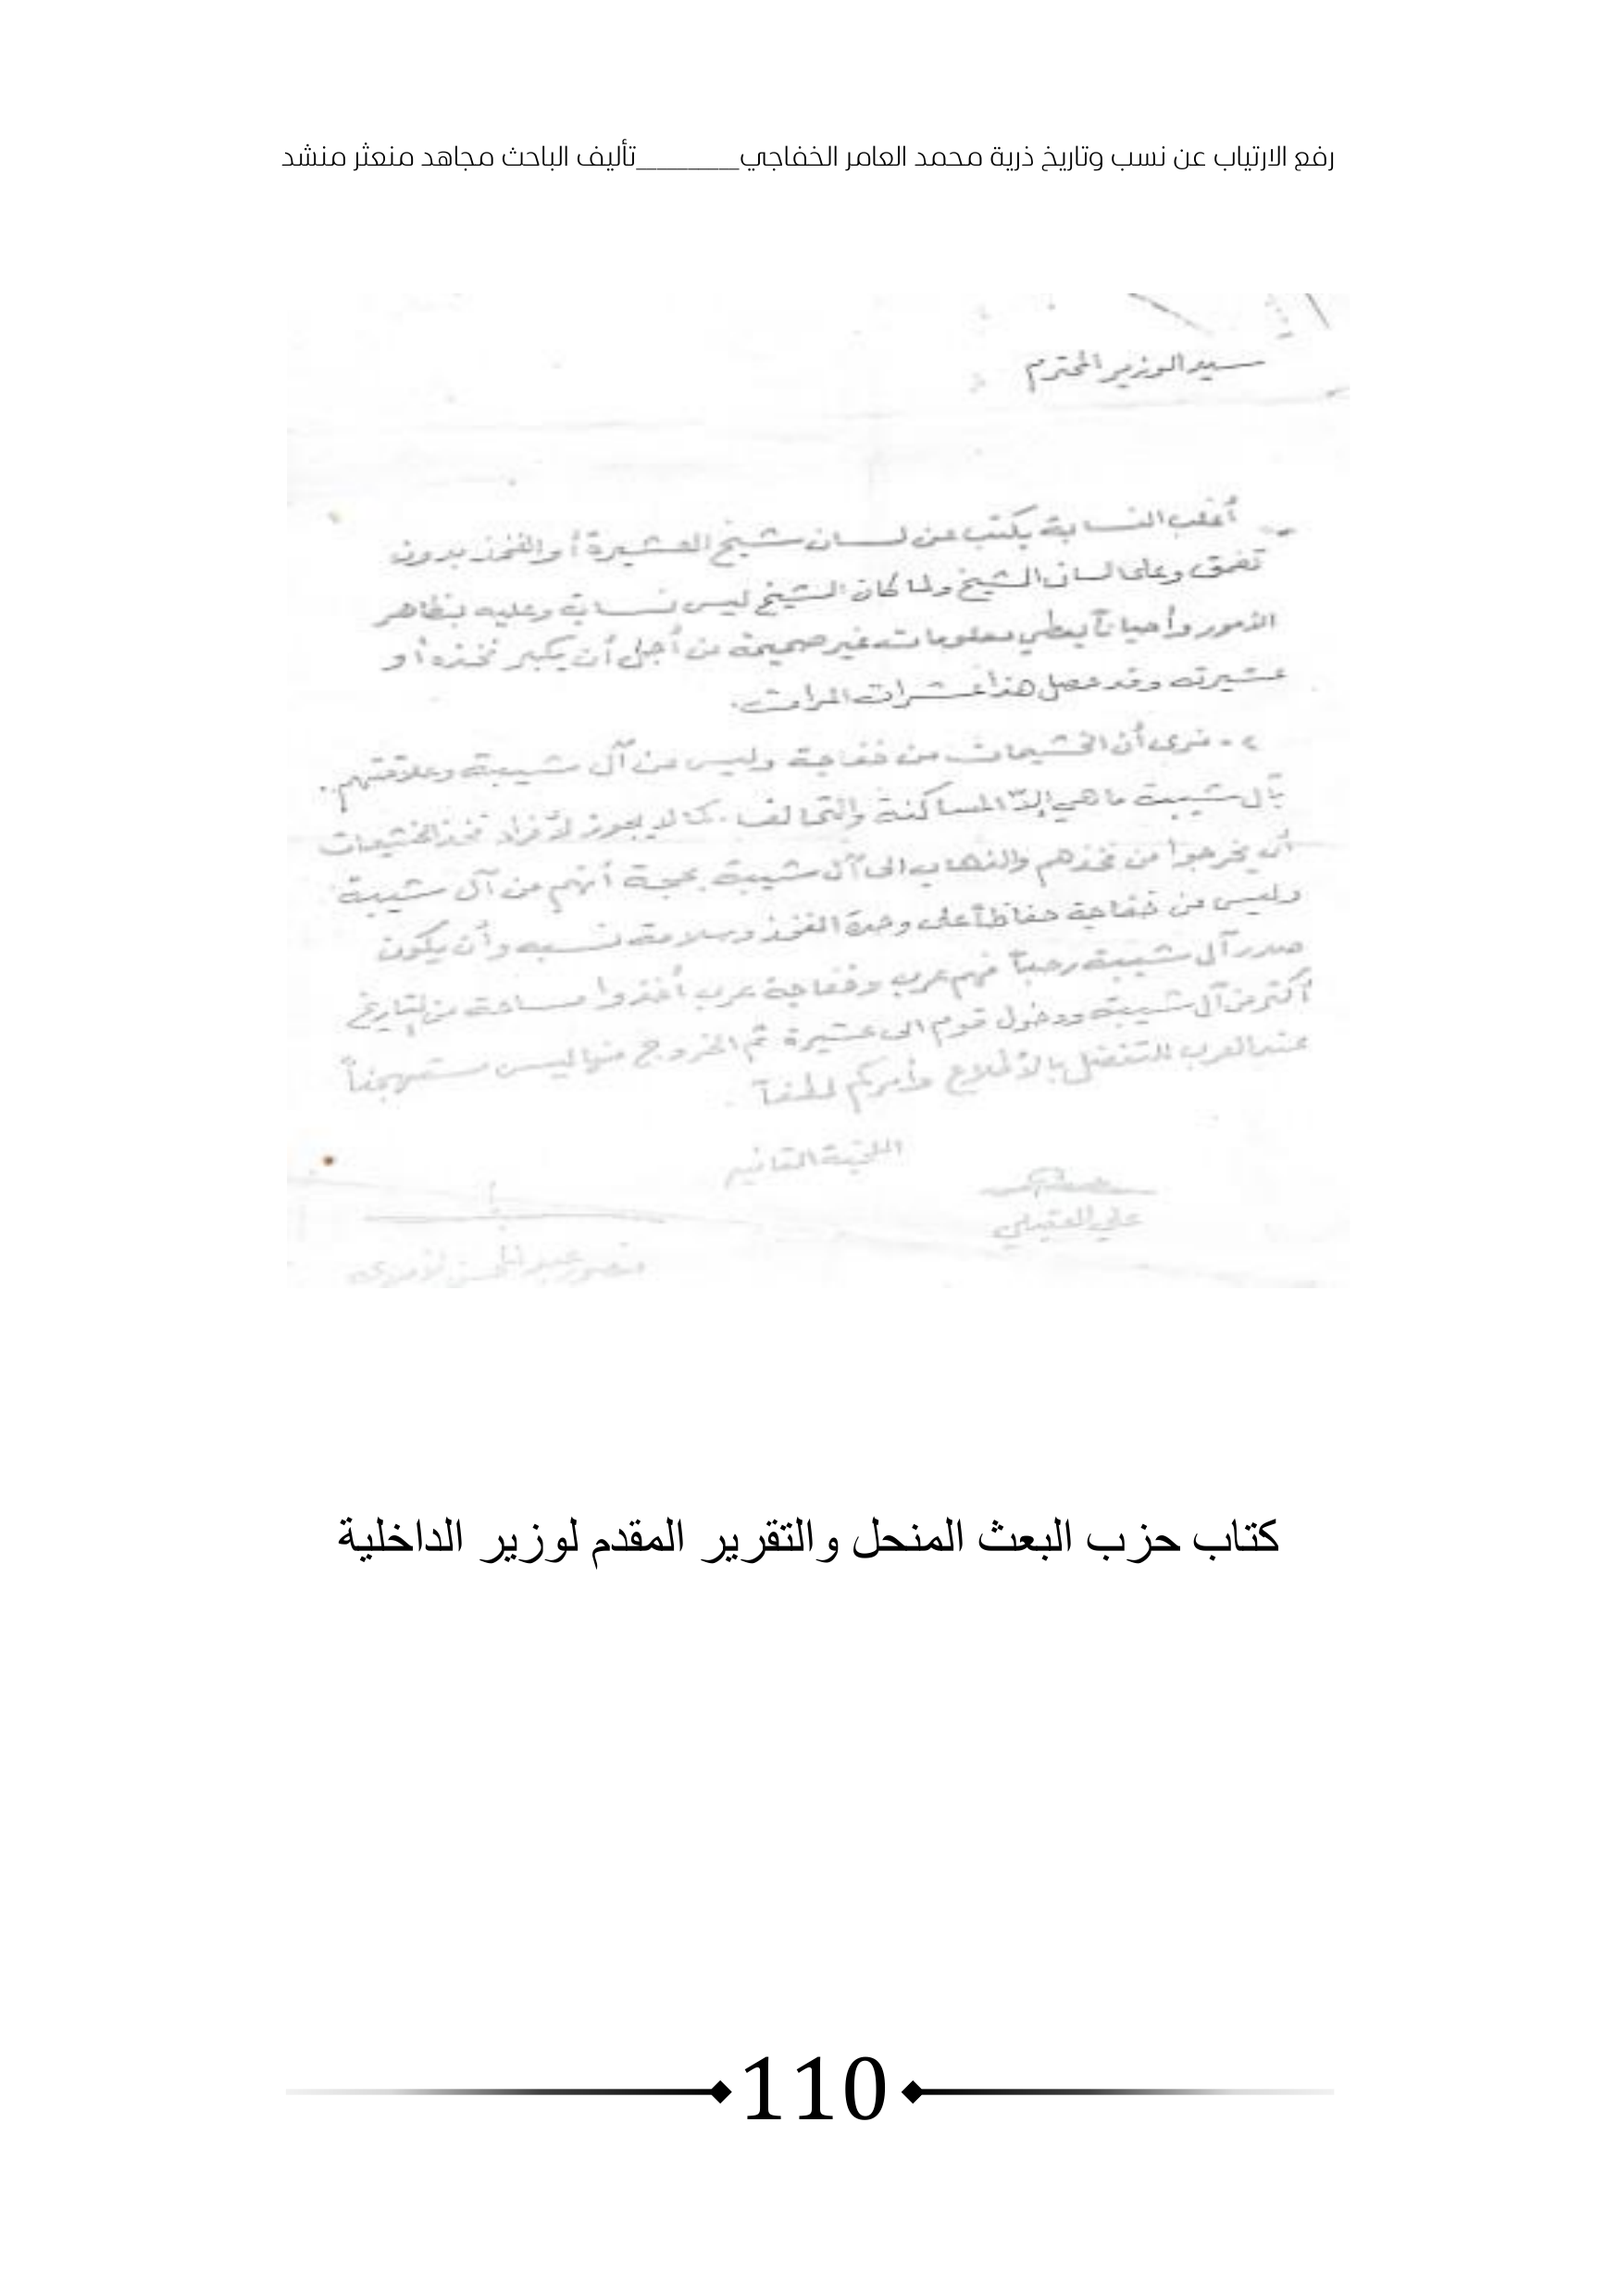 رفع الارتياب عن نسب وتاريخ ذرية محمد العامر الخفاجي________تأليف الباحث مجاهد منعثر منشد
سيد الوزير المحترم
أغلب النسابة يكتب عن لسان شيخ العشيرة أو الفخذ بدون
تعمق وعلى لسان الشيخ ولما كان الشيخ ليس نسابة وعليه بظاهر
الأمور وأحياناً يعطي معلومات غير صحيحة من أجل أن يكبر فخذه أو
عشيرته وقد حصل هذا عشرات المرات.
٢ - نرى أن الخشيمات من خفاجة وليس من آل شبيبة وعلاقتهم
بآل شبيبة ما هي إلا المساكنة والتحالف. كما لا يجوز لأفراد فخذ الخشيمات
أن يخرجوا من فخذهم والذهاب الى آل شبيبة بحجة أنهم من آل شبيبة
وليس من خفاجة حفاظاً على وحدة الفخذ وسلامة نسبه وأن يكون
صدر آل شبيبة رحباً فهم عرب وخفاجة عرب أخذوا مساحة من التاريخ
أكثر من آل شبيبة ودخول قوم الى عشيرة ثم الخروج منها ليس مستهجناً
عند العرب للتفضل بالأطلاع وأمركم لطفاً.
علي العقيلي
كتاب حزب البعث المنحل والتقرير المقدم لوزير الداخلية
110